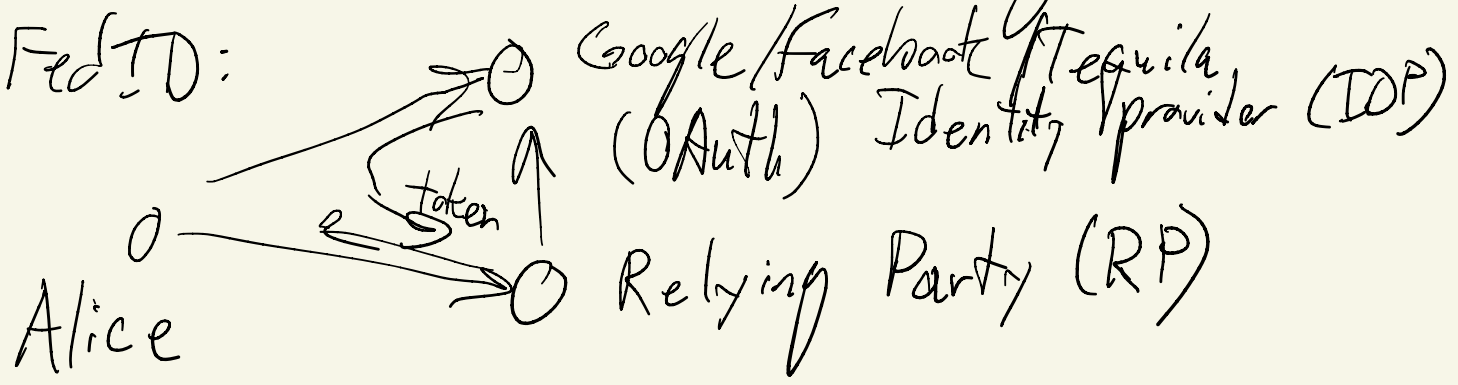 FedID:
Google/Facebook/Tequila
(OAuth) Identity provider (IDP)
token
Relying Party (RP)
Alice